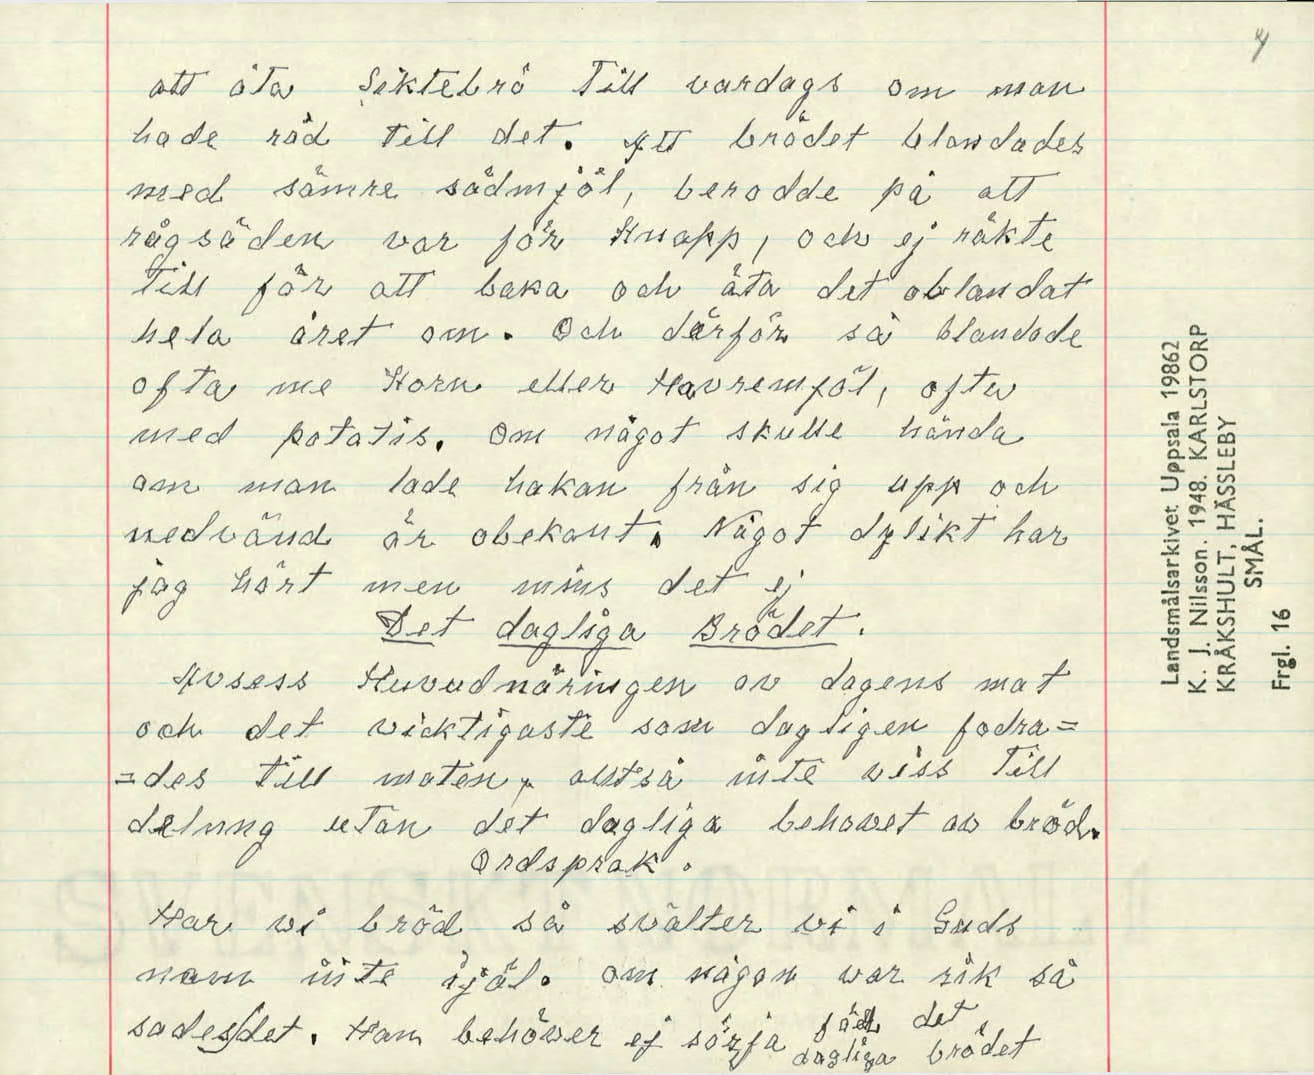 4
att äta Siktebrö till vardags om man
hade råd till det. Att brödet blandades
med sämre sädmjöl, berodde på att
rågsäden var för knapp, och ej räkte
till för att baka och äta det oblandat
hela året om. Och därför så blandade
ofta me Korn eller Havremjöl, ofta
med potatis. Om något skulle hända
om man lade kakan från sig upp och
nedvänd är obekant. Något dylikt har
jag hört men mins det ej
Det dagliga Brödet.
Avsess Huvudnäringen av dagens mat
och det vicktigaste som dagligen fodra=
=des till maten, alltså inte viss till
delning utan det dagliga behovet av bröd.
Ordsprak.
Har vi bröd så svälter vi i Guds
nam inte ijäl. Om någon var rik så
sades det. Han behöver ej sörja för det
dagliga brödet
Landsmålsarkivet Uppsala 19862
K. J. Nilsson. 1948. KARLSTORP
KRÅKSHULT, HÄSSLEBY
SMÅL.
Frgl. 16